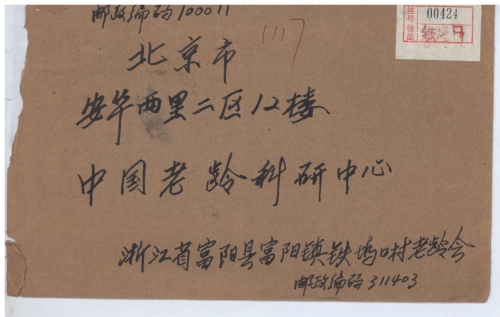 邮政编码100011
1117
00424
北京市
安华西里二区12楼
中国老龄科研中心
浙江省富阳县富阳镇铁坞口村老龄会
邮政编码311403